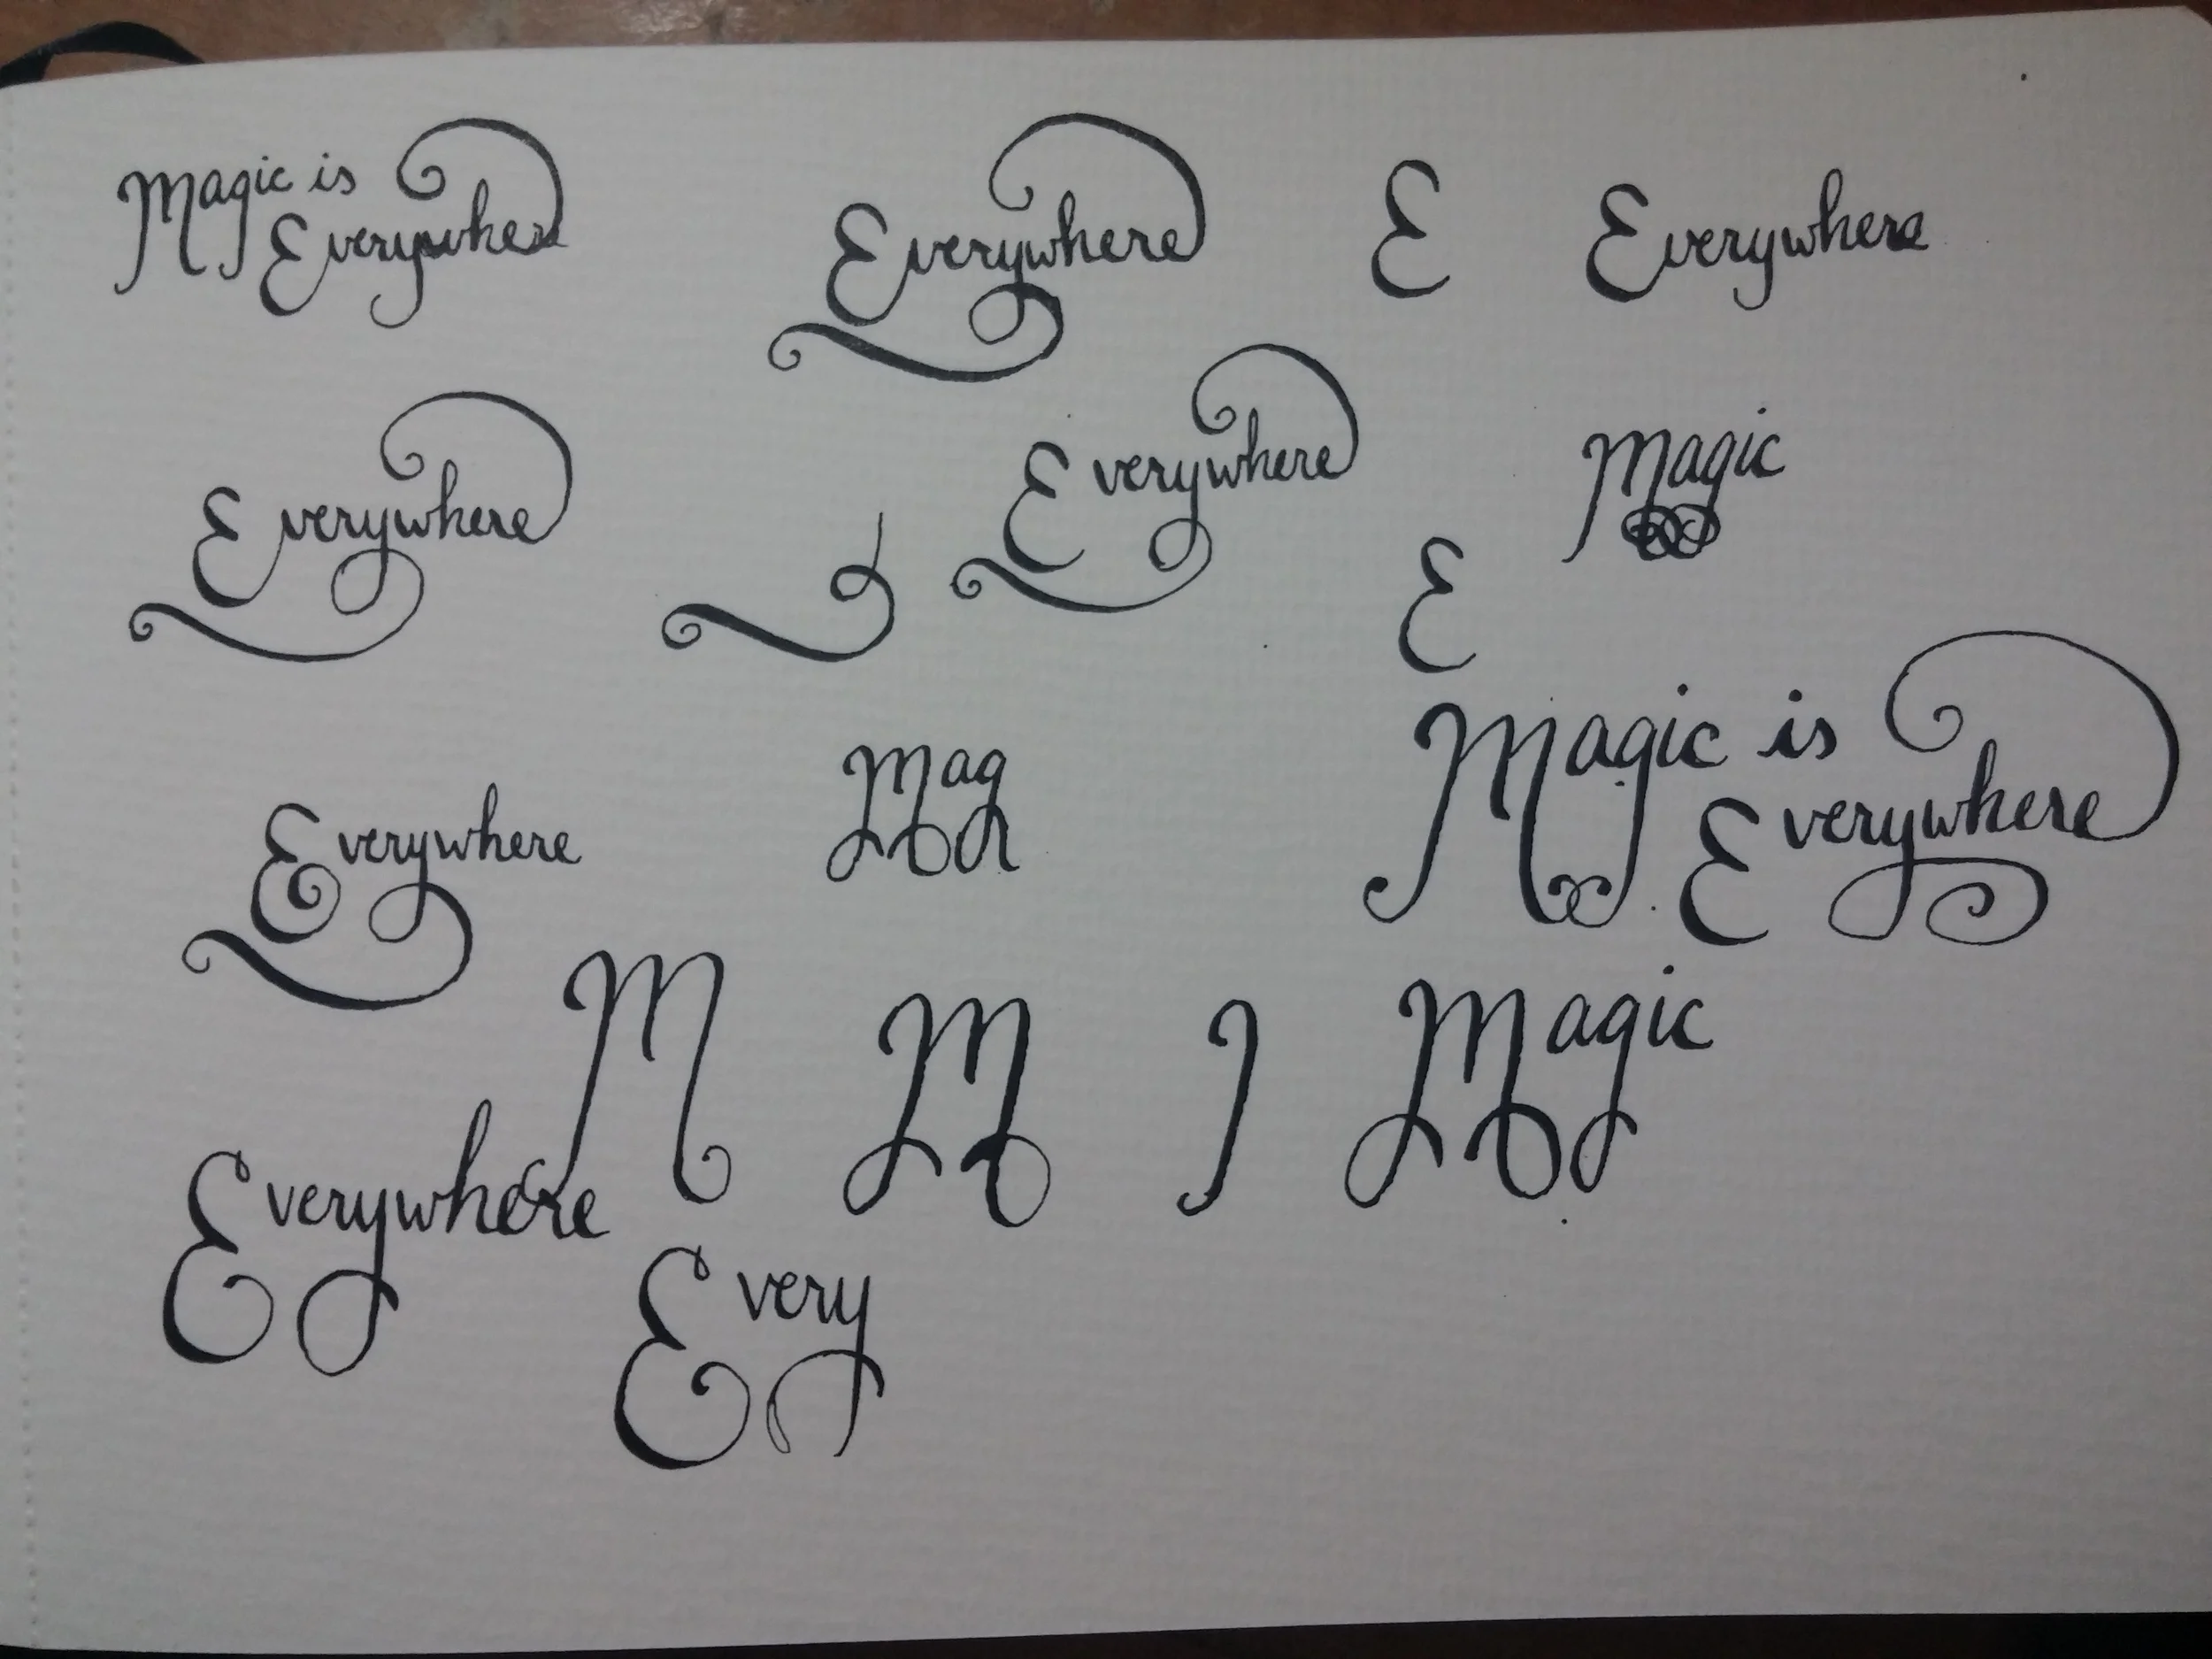 Magic is
Everywhere
Everywhere
E
Everywhere
Everywhere
Everywhere
Magic
E
Magic is
Everywhere
Everywhere
Mag
M
M
Magic
Everywhere
Every